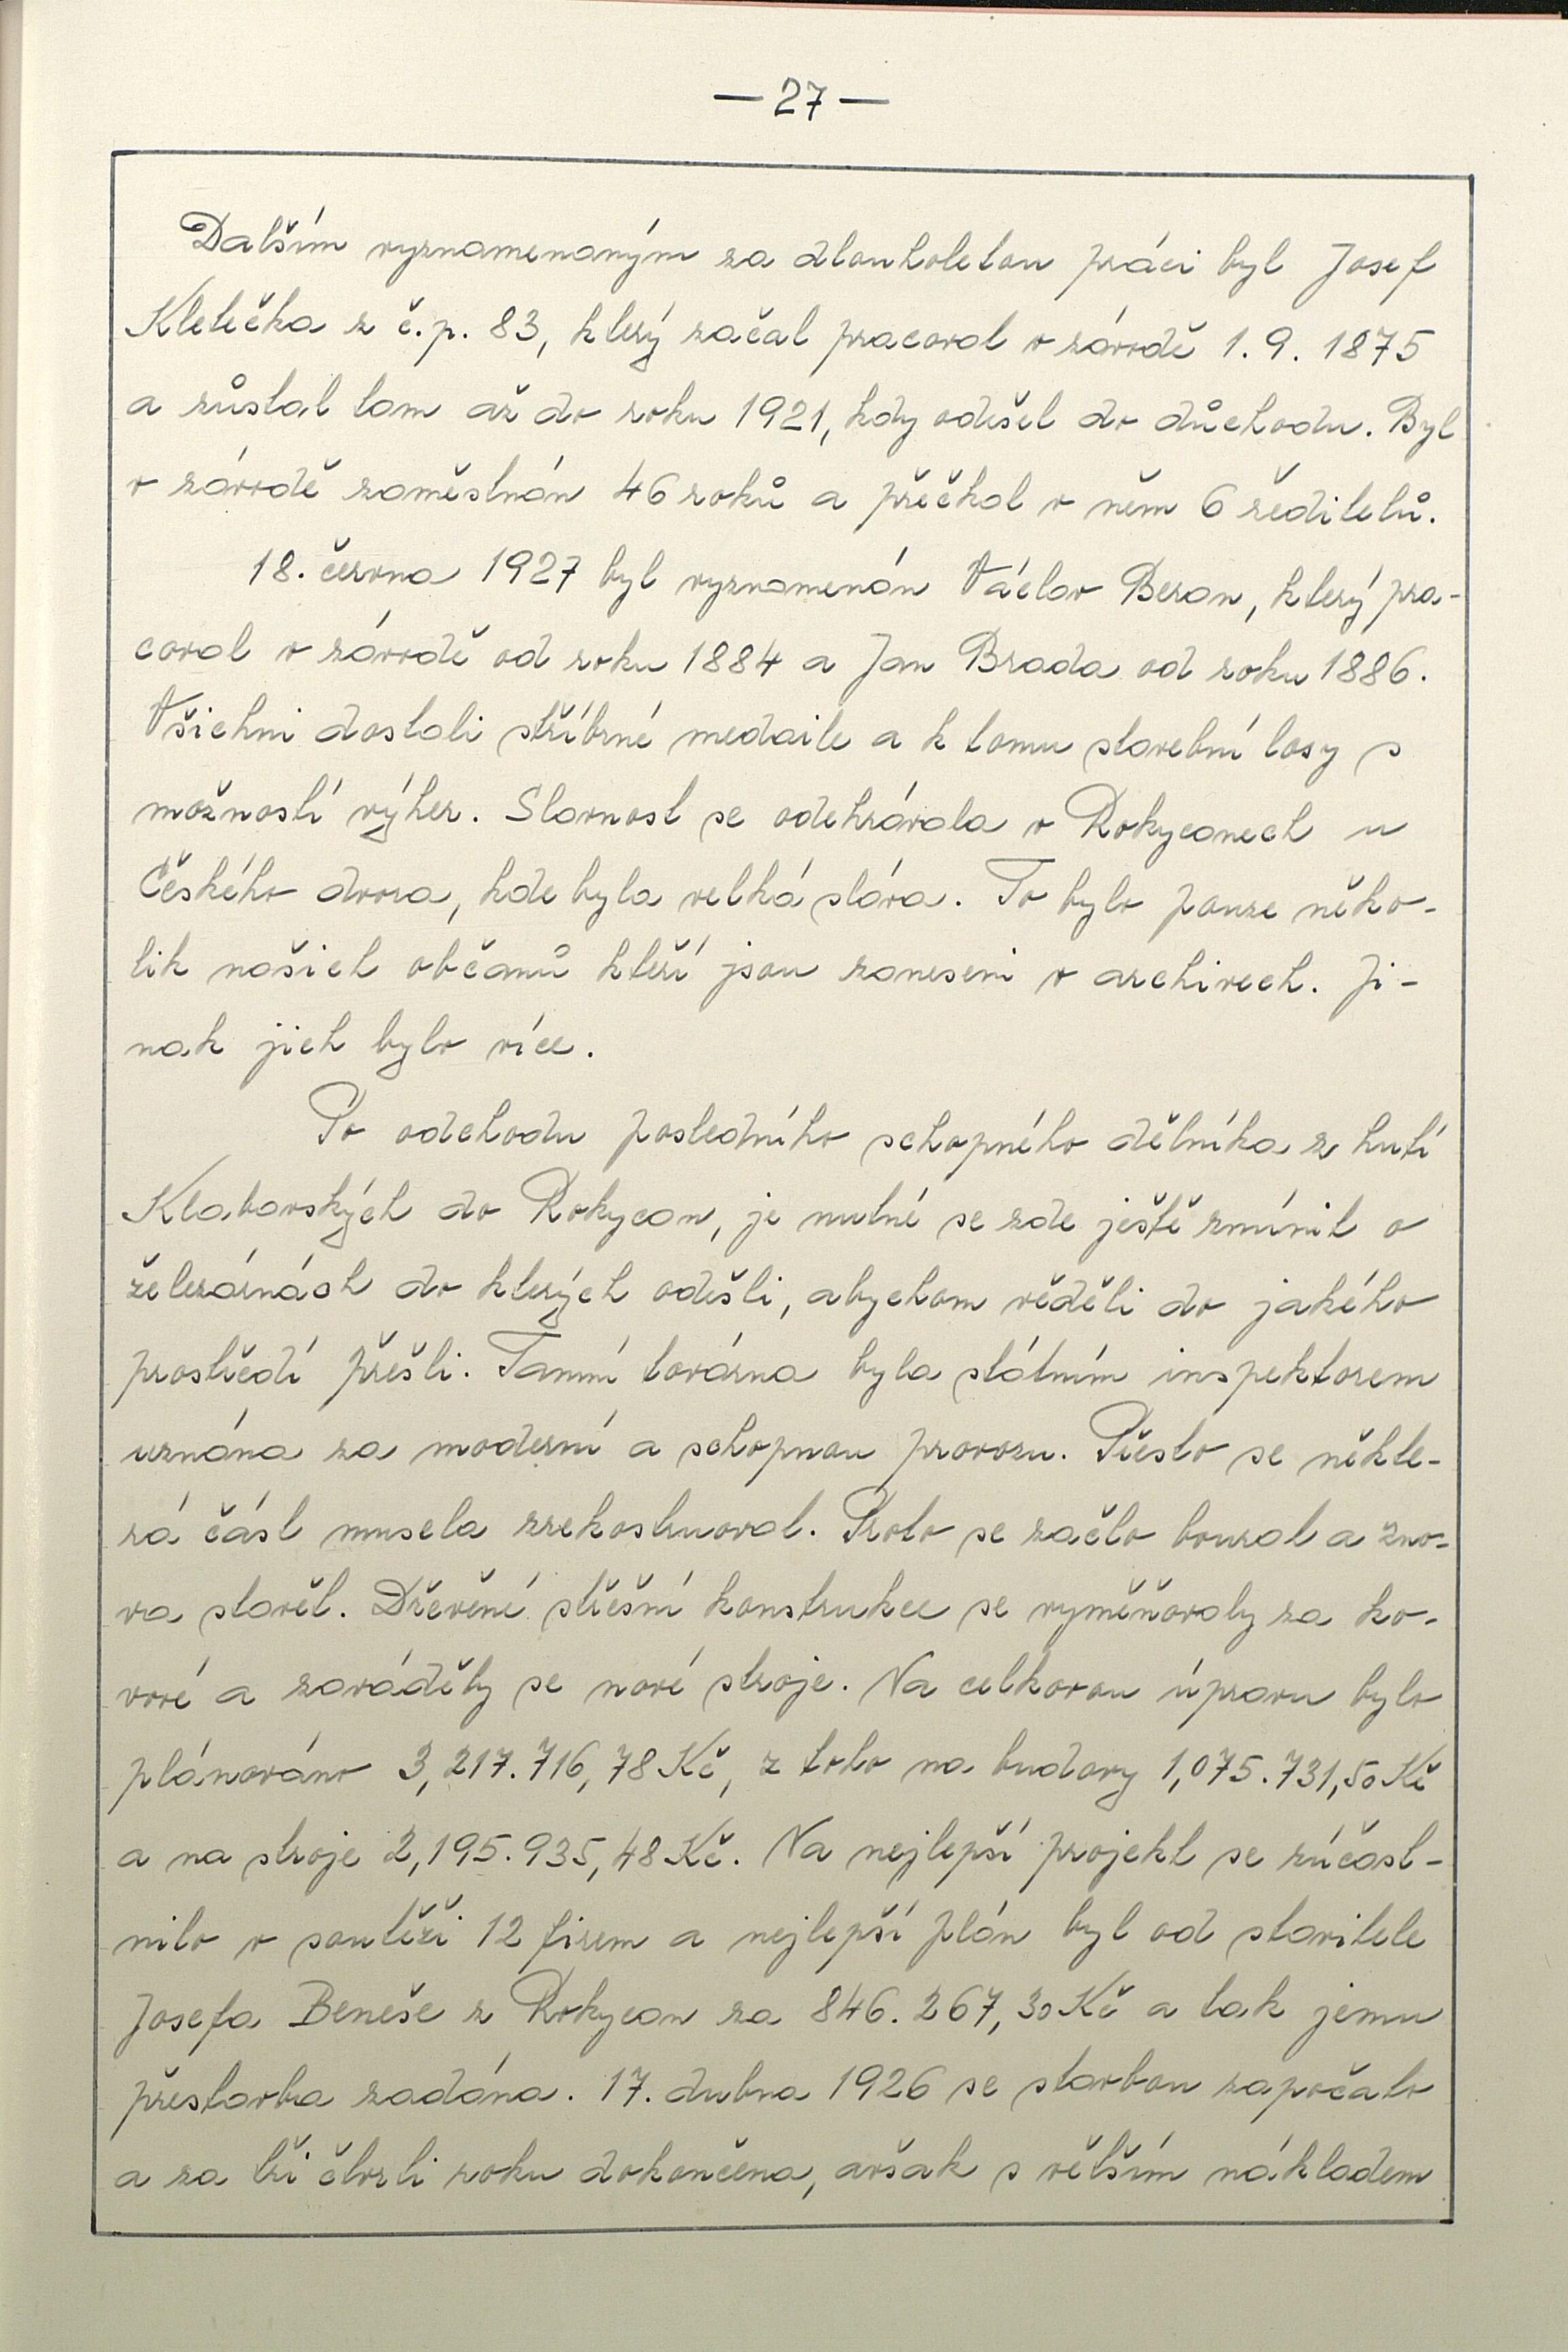 — 27 —
Dalším vyznamenaným za dlouholetou práci byl Josef
Kletečka z č.p. 83, který začal pracovat v závodě 1. 9. 1875
a zůstal tam až do roku 1921, kdy odešel do důchodu. Byl
v závodě zaměstnán 46 roků a přečkal v něm 6 ředitelů.
18. června 1927 byl vyznamenán Václav Beran, který pra-
coval v závodě od roku 1884 a Jan Brada od roku 1886.
Všichni dostali stříbrné medaile a k tomu stavební losy s
možností výher. Slavnost se odehrávala v Rokycanech u
Českého dvora, kde byla velká sláva. To bylo pouze něko-
lik našich občanů kteří jsou zaneseni v archivech. Ji-
nak jich bylo více.
Po odchodu posledního schopného dělníka z hutí
Klabavských do Rokycan, je nutné se zde ještě zmínit o
železárnách do kterých odešli, abychom věděli do jakého
prostředí přešli. Tamní továrna byla státním inspektorem
uznána za moderní a schopnou provozu. Přesto se někte-
rá část musela zrekostruovat. Proto se začlo bourat a zno-
va stavět. Dřevěné střešní konstrukce se vyměňovaly za ko-
vové a zaváděly se nové stroje. Na celkovou úpravu bylo
plánováno 3,217.716,78 Kč, z toho na budovy 1,075.731,50 Kč
a na stroje 2,195.935,48 Kč. Na nejlepší projekt se zúčast-
nilo v soutěži 12 firem a nejlepší plán byl od stavitele
Josefa Beneše z Rokycan za 846.267,30 Kč a tak jemu
přestavba zadána. 17. dubna 1926 se stavbou započato
a za tři čtvrti roku dokončena, avšak s větším nákladem